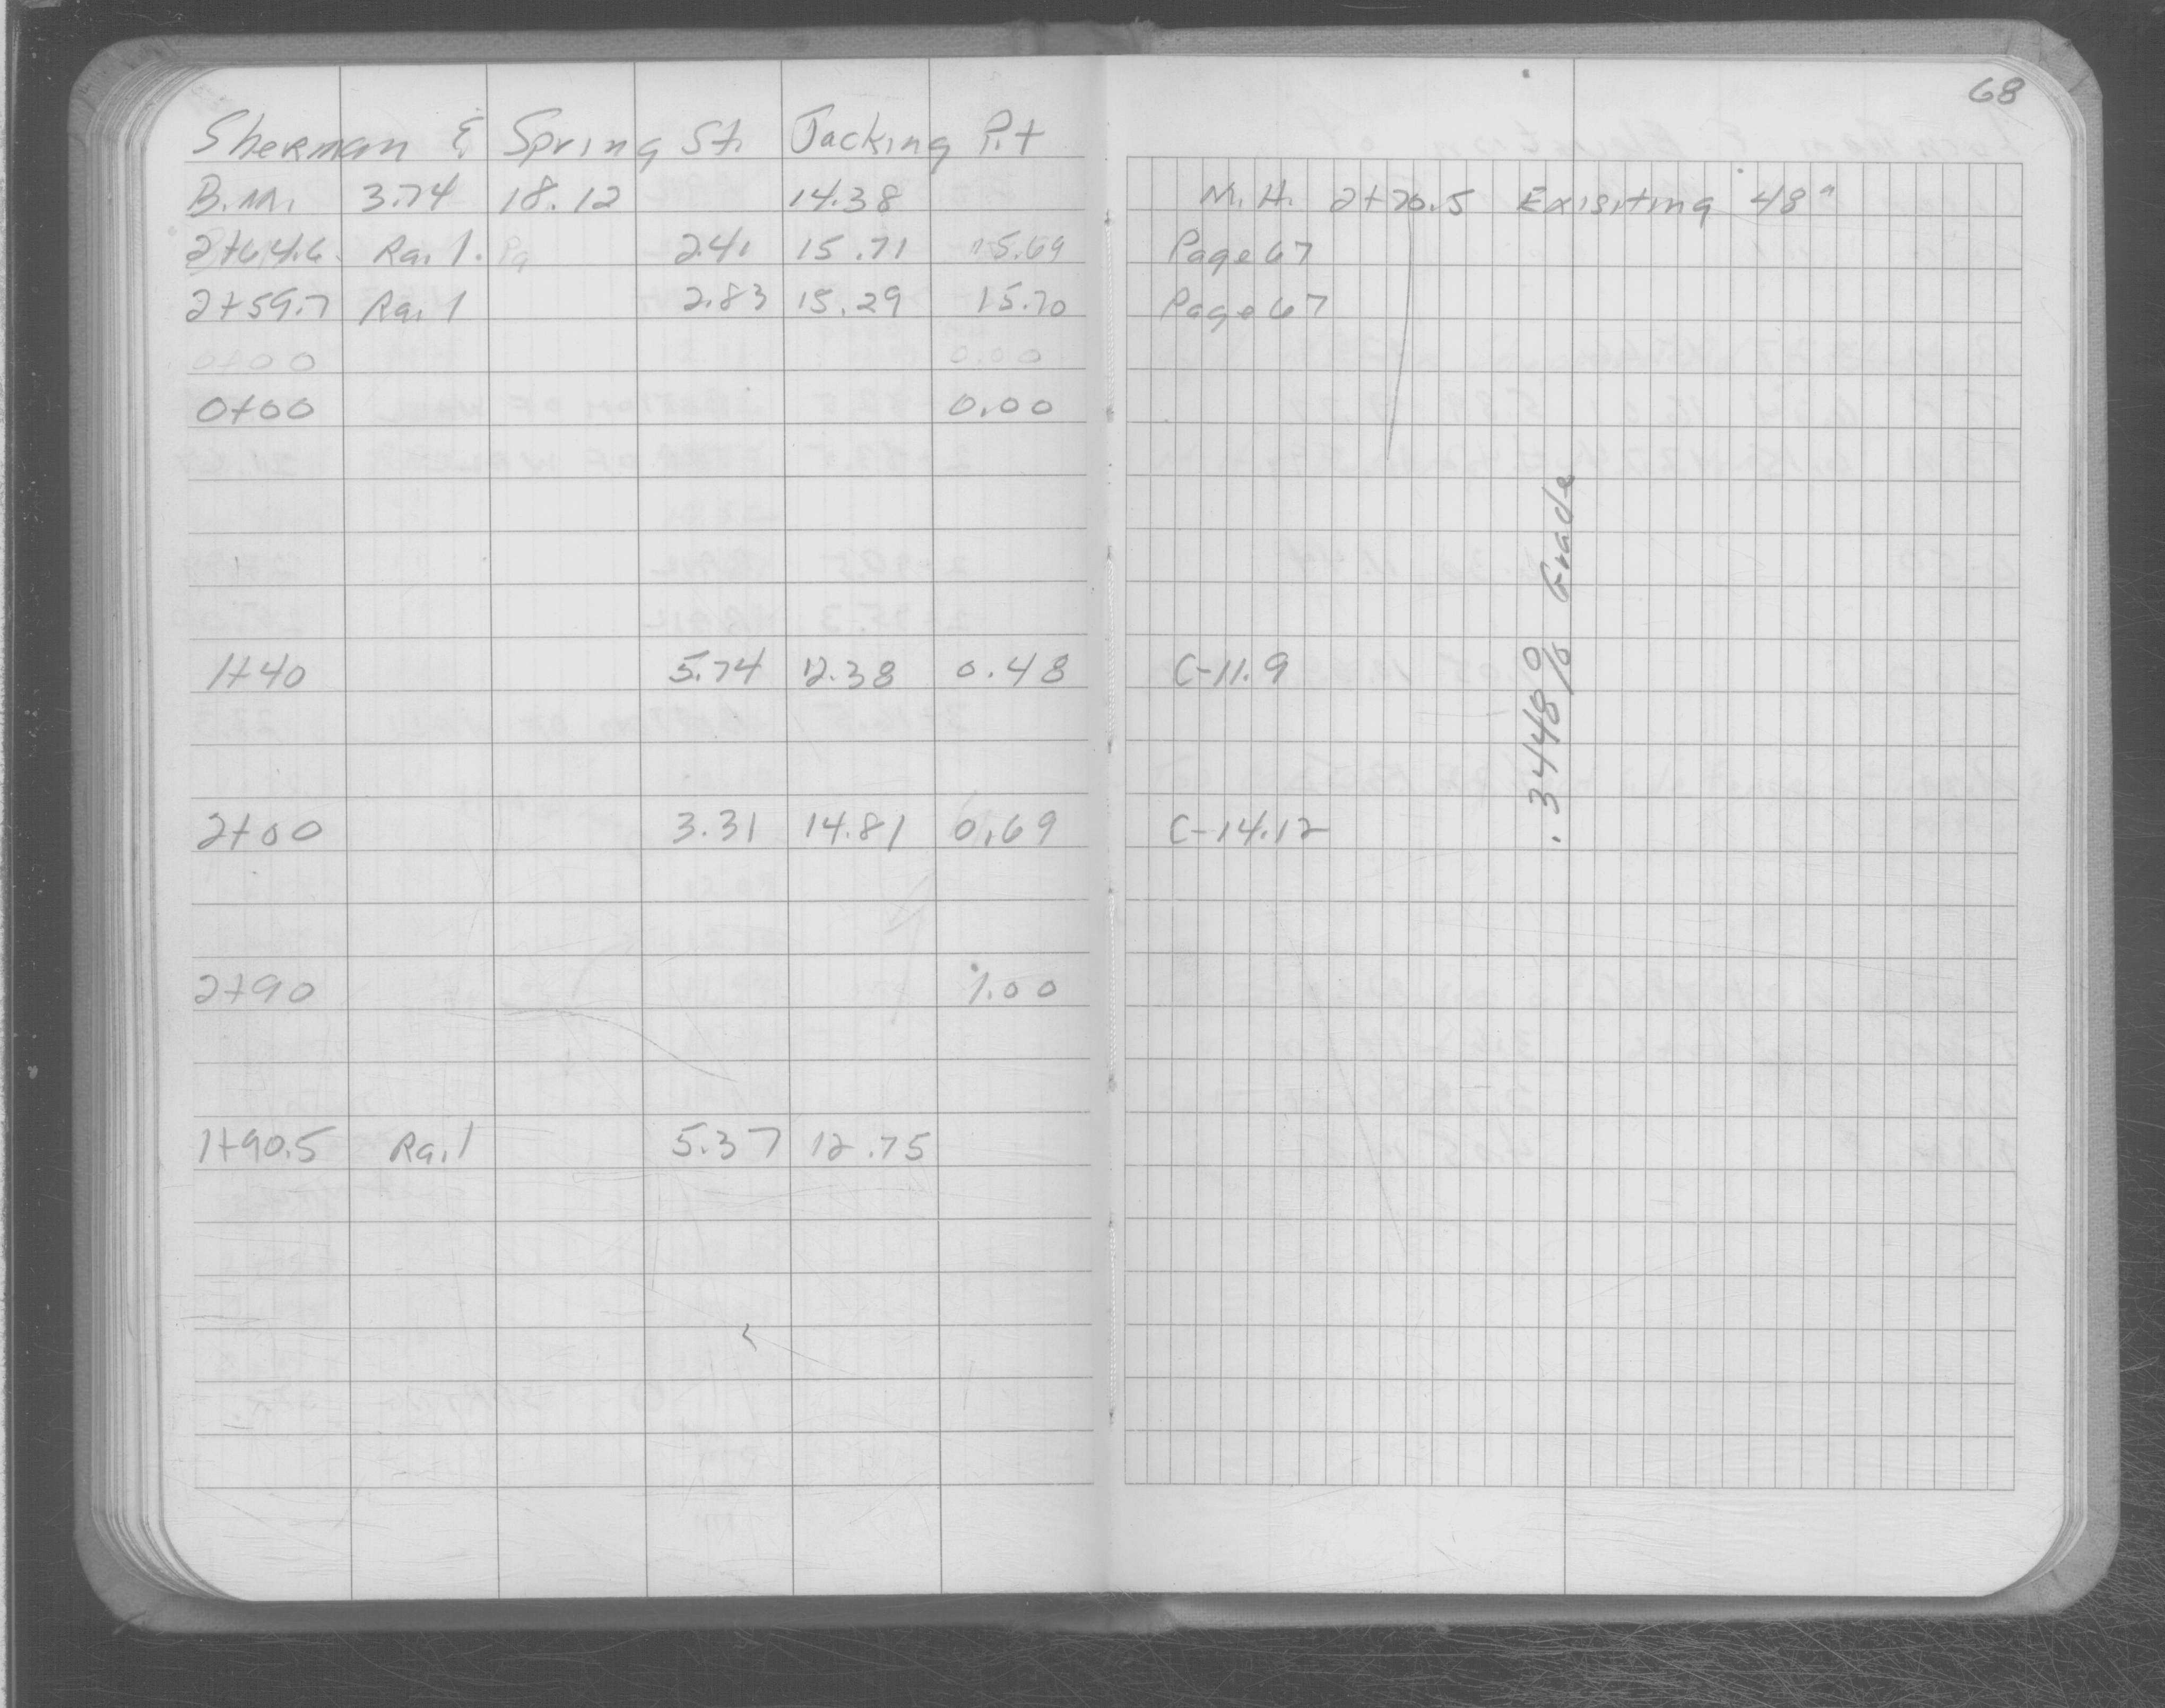 68
Sherman & Spring St. Jacking Pit
B.M. 3.74 18.12 14.38 M.H. 2+70.5 Exisiting 48"
2+64.6 Rail. Pg 2.41 15.71 15.69 Page 67
2+59.7 Rail 2.83 15.29 15.70 Page 67
0+00 0.00
0+00 0.00
.3448% Grade
1+40 5.74 12.38 0.48 C-11.9
2+00 3.31 14.81 0.69 C-14.12
2+90 1.00
1+90.5 Rail 5.37 12.75